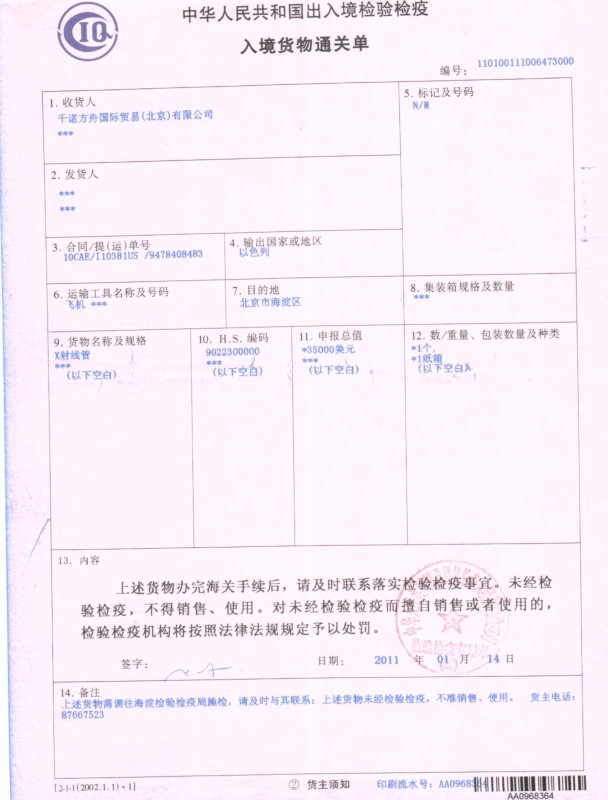 CIQ
中华人民共和国出入境检验检疫
入境货物通关单
编号: 110100111006473000
1. 收货人
千诺方舟国际贸易(北京)有限公司
***
5. 标记及号码
N/M
2. 发货人
***
***
3. 合同/提(运)单号
10CAE/I10381US /9478408483
4. 输出国家或地区
以色列
6. 运输工具名称及号码
飞机 ***
7. 目的地
北京市海淀区
8. 集装箱规格及数量
***
9. 货物名称及规格
X射线管
***
(以下空白)
10. H.S. 编码
9022300000
***
(以下空白)
11. 申报总值
*35000美元
***
(以下空白)
12. 数/重量、包装数量及种类
*1个,
*1纸箱
(以下空白)
13. 内容
上述货物办完海关手续后,请及时联系落实检验检疫事宜。未经检
验检疫,不得销售、使用。对未经检验检疫而擅自销售或者使用的,
检验检疫机构将按照法律法规规定予以处罚。
签字: 日期: 2011 年 01 月 14 日
14. 备注
上述货物需调往海淀检验检疫局施检,请及时与其联系;上述货物未经检验检疫,不准销售、使用。 货主电话:
87667523
[2-1-1(2002.1.1)*1]
② 货主须知
印刷流水号: AA0968364
AA0968364